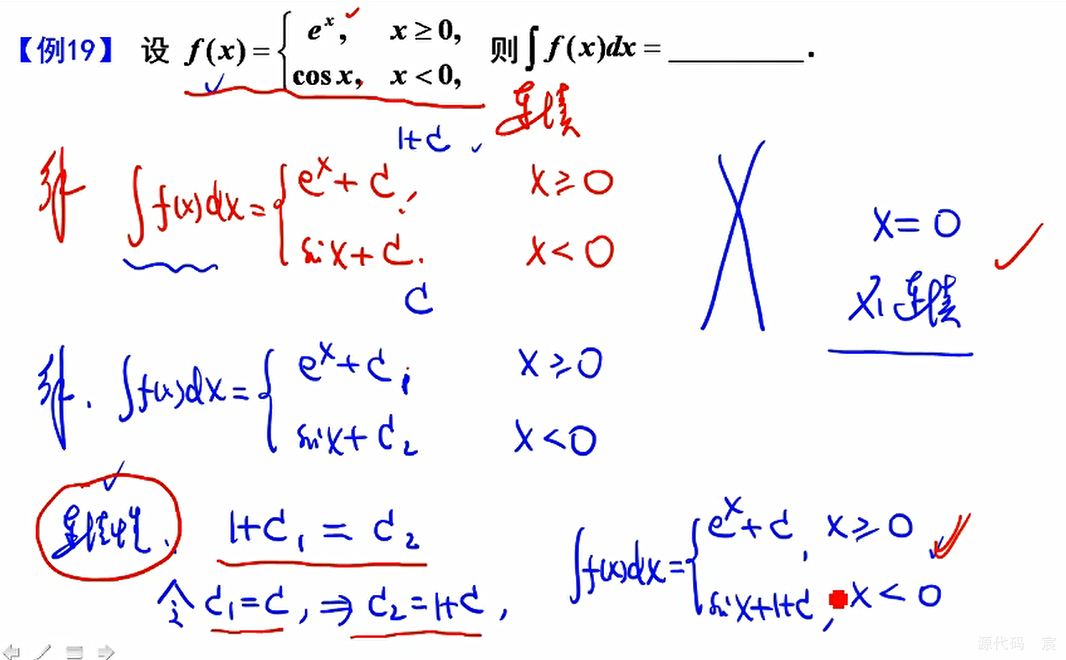 【例19】 设 f(x) = { e^x, x ≥ 0, cos x, x < 0, 则 ∫ f(x)dx = ________ .
连续
1+C
解 ∫f(x)dx = { e^x + C, x ≥ 0
sin x + C. x < 0
C
x = 0
不连续
解. ∫f(x)dx = { e^x + C₁ x ≥ 0
sin x + C₂ x < 0
连续性. 1+C₁ = C₂
令 C₁ = C, ⇒ C₂ = 1+C,
∫f(x)dx = { e^x + C, x ≥ 0
sin x + 1 + C, x < 0
源代码 宸